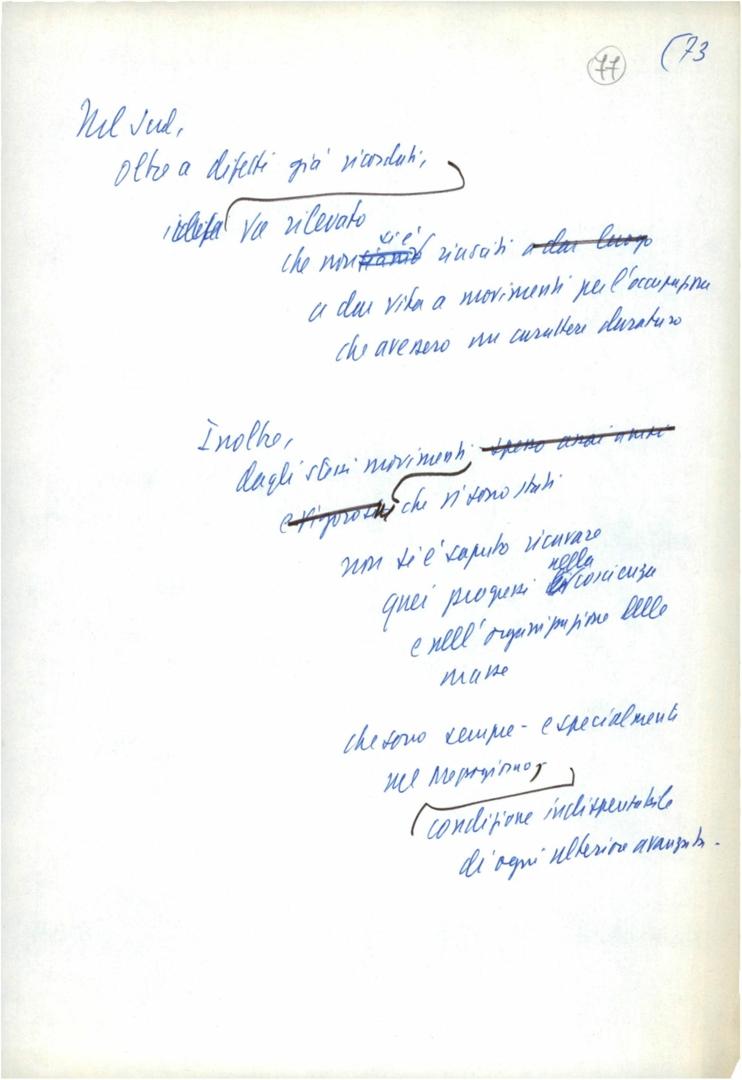 77 (73
Nel Sud,
oltre a difetti già ricordati,
va rilevato
si è
che non siamo riusciti a dar luogo
a dar vita a movimenti per l'occupazione
che avessero un carattere duraturo
Inoltre,
dagli stessi movimenti spesso assai
e vigorosi che vi sono stati
non si è saputo ricavare
nella
quei progressi coscienza
e nell'organizzazione delle
masse
che sono sempre - e specialmente
nel Mezzogiorno,
condizione indispensabile
di ogni ulteriore avanzata.